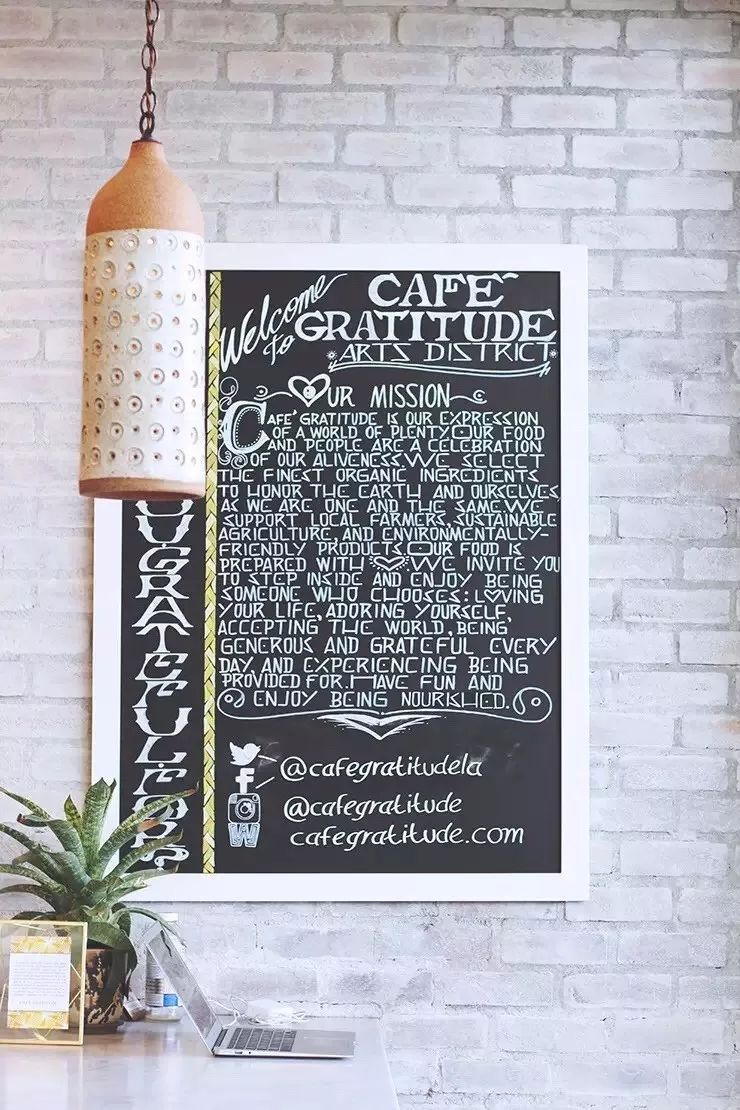 Welcome to
CAFE GRATITUDE
ARTS DISTRICT
OUR MISSION
CAFE GRATITUDE IS OUR EXPRESSION
OF A WORLD OF PLENTY. OUR FOOD
AND PEOPLE ARE A CELEBRATION
OF OUR ALIVENESS. WE SELECT
THE FINEST ORGANIC INGREDIENTS
TO HONOR THE EARTH AND OURSELVES,
AS WE ARE ONE AND THE SAME. WE
SUPPORT LOCAL FARMERS, SUSTAINABLE
AGRICULTURE, AND ENVIRONMENTALLY-
FRIENDLY PRODUCTS. OUR FOOD IS
PREPARED WITH ♡. WE INVITE YOU
TO STEP INSIDE AND ENJOY BEING
SOMEONE WHO CHOOSES: LOVING
YOUR LIFE, ADORING YOURSELF,
ACCEPTING THE WORLD, BEING
GENEROUS AND GRATEFUL EVERY
DAY, AND EXPERIENCING BEING
PROVIDED FOR. HAVE FUN AND
ENJOY BEING NOURISHED.
@cafegratitudela
@cafegratitude
cafegratitude.com
GRATEFUL FOR?